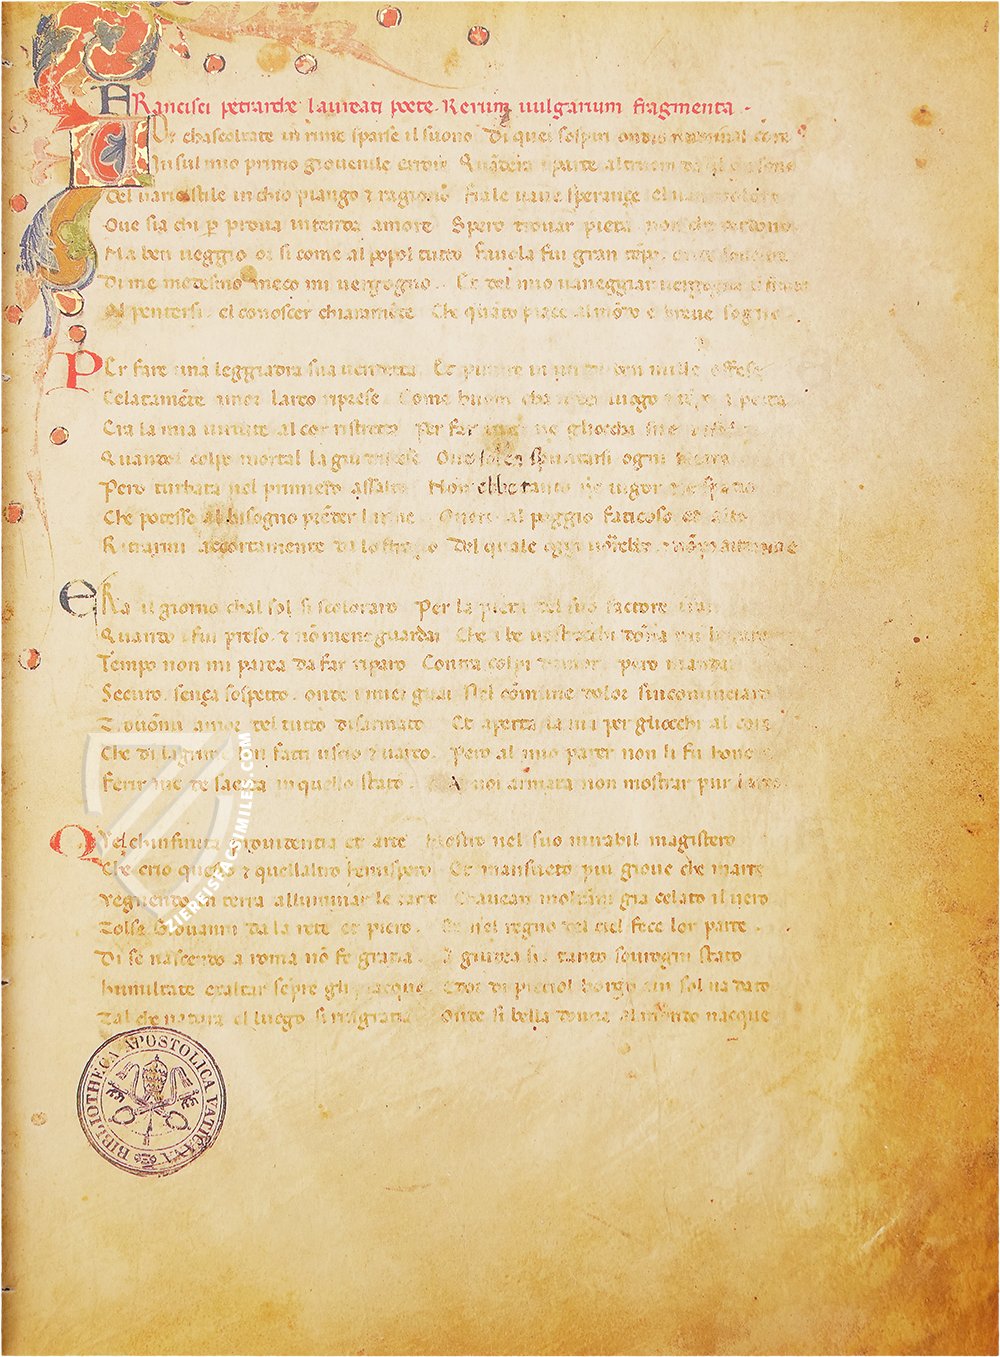 FRancisci petrarche laureati poete. Rerum uulgarium fragmenta .
Voi chascoltate in rime sparse il suono Di quei sospiri ondio nudriual core
In sul mio primo giouenile errore Quādera īparte altruom da quel chi sono
Del uario stile in chio piango ⁊ ragiono Fra le uane speranze el uan dolore
Oue sia chi ꝑ proua intenda amore Spero trouar pieta non che perdono
Ma ben ueggio or si come al popol tutto Fauola fui gran tēpo
Di me medesmo meco mi uergogno . Et del mio uaneggiar uergogna
Al pentersi. el conoscer chiaramēte Che quāto piace al mōdo e breue sogno
PEr fare una leggiadra sua uendetta Et punire in un di ben mille offese
Celatamēte amor larco riprese. Come huom cha
Era la mia uirtute al cor ristretta Per far ne gliocchi sue difese
Quandol colpo mortal la giu discese Oue solea spuntarsi ogni saetta
Pero turbata nel primiero assalto Non ebbe tanto ne uigor ne spatio
Che potesse al bisogno prēder larme. Ouero al poggio faticoso et alto
Ritrarmi accortamente da lo stratio Del quale oggi uorrebbe
ERa il giorno chal sol si scoloraro Per la pieta del suo factore i rai
Quando i fui preso. ⁊ nō mene guardai Che i be uostrocchi dōna mi legaro
Tempo non mi parea da far riparo Contra colpi damor. pero mandai
Securo. sença sospetto. onde i miei guai Nel cōmune dolor sincominciaro
Trouōmi amor del tutto disarmato Et aperta la uia per gliocchi al core
Che di lagrime son facti uscio ⁊ uarco. Pero al mio parer non li fu honore
Ferir me de saetta in quello stato . A uoi armata non mostrar pur larco
QVel chinfinita prouidentia et arte Mostro nel suo mirabil magistero
Che crio questo ⁊ quellaltro hemispero Et mansueto piu gioue che marte
Vegnendo in terra alluminar le carte Chauean moltāni gia celato il uero
Tolse Giouanni da la rete et piero. Et nel regno del ciel fece lor parte .
Di se nascendo a roma nō fe gratia. A giudea si. tanto sourogni stato
humiltate exaltar sēpre gli piacque. Et or di picciol borgo un sol na dato
Tal che natura el luogo si ringratia Onde si bella donna al mondo nacque
BIBLIOTHECA APOSTOLICA VATICANA
ZIEREISFACSIMILES.COM